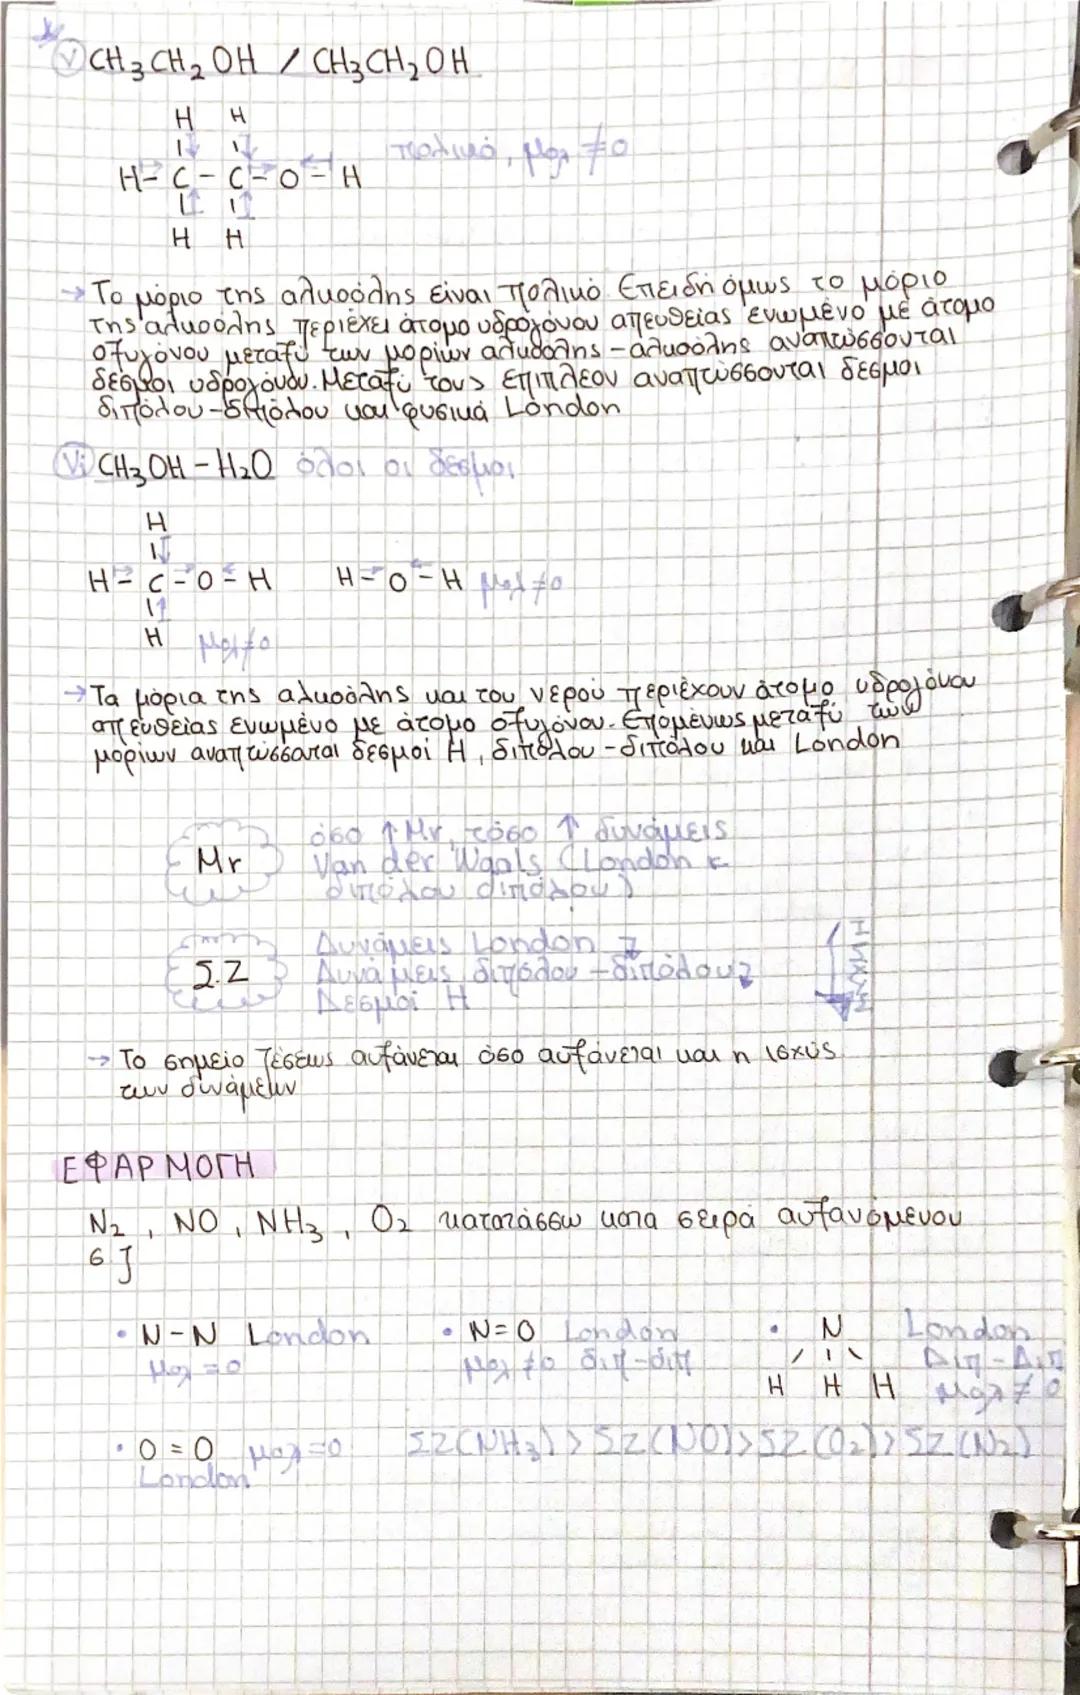 v CH3CH2OH / CH3CH2OH
H H
H - C - C - O - H πολικό, μολ ≠0
H H
→ Το μόριο της αλκοόλης είναι πολικό. Επειδή όμως το μόριο
της αλκοόλης περιέχει άτομο υδρογόνου απευθείας ενωμένο με άτομο
οξυγόνου μεταξύ των μορίων αλκοόλης - αλκοόλης αναπτύσσονται
δεσμοί υδρογόνου. Μεταξύ τους επιπλέον αναπτύσσονται δεσμοί
διπόλου - διπόλου και φυσικά London
vi CH3OH - H2O όλοι οι δεσμοι
H
H - C - O - H H - O - H μολ ≠0
H μολ ≠0
→ Τα μόρια της αλκοόλης και του νερού περιέχουν άτομο υδρογόνου
απευθείας ενωμένο με άτομο οξυγόνου. Επομένως μεταξύ των
μορίων αναπτύσσονται δεσμοί H, διπόλου - διπόλου και London
Mr όσο ↑ Mr, τόσο ↑ δυνάμεις
Van der Waals (London κ
διπόλου διπόλου)
Σ.Ζ Δυνάμεις London
Δυνάμεις διπόλου - διπόλου
Δεσμοί H
ΙΣΧΥΣ
→ Το σημείο ζέσεως αυξάνεται όσο αυξάνεται και η ισχύς
των δυνάμεων
ΕΦΑΡΜΟΓΗ
N2, NO, NH3, O2 κατατάσσω κατα σειρά αυξανόμενου
σ ζ
• N - N London • N = O London • N London
μολ = 0 μολ ≠0 διπ - διπ Διπ - Διπ
H H H μολ ≠ 0
• O = O μολ = 0 ΣΖ(NH3) > ΣΖ(NO) > ΣΖ(O2) > ΣΖ(N2)
London